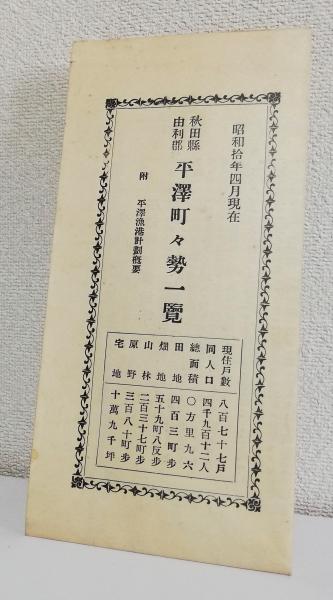 昭和拾年四月現在
秋田縣
由利郡
平澤町々勢一覽
附 平澤漁港計劃概要
現住戶數 八百七十七戶
同人口 四千九百十二人
總面積 〇方里九六
田地 四百三町步
畑地 五十九町八反步
山林 二百三十七町步
原野 三百八十町步
宅地 十萬九千坪